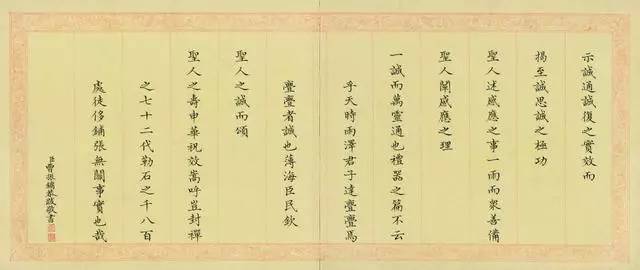 示誠通誠復之實效而
揭至誠思誠之極功
聖人述感應之事一雨而眾善備
聖人闡感應之理
一誠而萬靈通也禮器之篇不云
乎天時雨澤君子達亹亹焉
亹亹者誠也薄海臣民欽
聖人之誠而頌
聖人之壽申華祝效嵩呼豈封禪
之七十二代勒石之千八百
處徒侈鋪張無關事實也哉
臣曹振鏞恭跋敬書